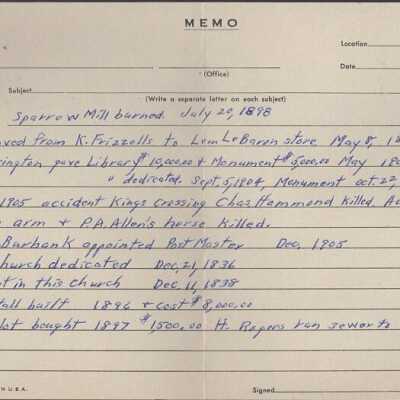 MEMO
Location
Date
(Office)
Subject
(Write a separate letter on each subject)
Sparrow Mill burned. July 20, 1898
ved from K. Frizzells to Lem LeBaron store May 8, 18
ington gave Library $10,000.00 + Monument $5,000.00 May 180
" dedicated. Sept. 5, 1904, Monument Oct. 22,
1905 accident Kings Crossing Chas Hammond killed.
arm + P.A. Allen's horse killed.
Barbank appointed Post Master Dec. 1905
hurch dedicated Dec, 21, 1836
t in this church Dec, 11, 1838
all built 1896 + cost $8,000.00
lot bought 1897 $1,500.00 H. Rogers ran
N U.S.A.
Signed